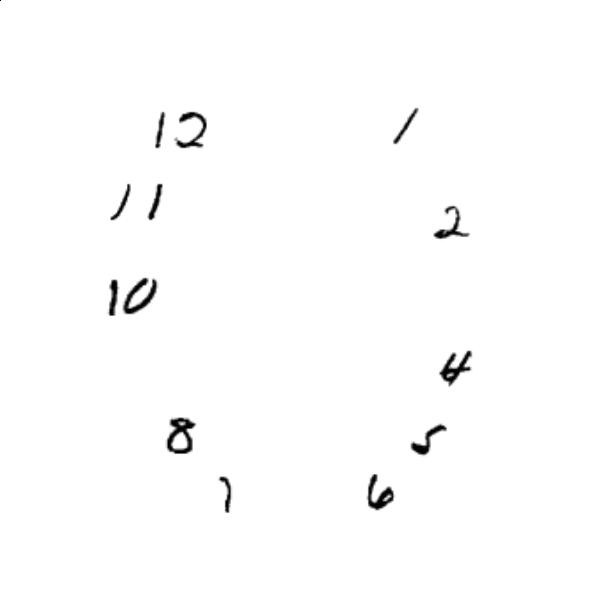 12 1
11 2
10
4
8 5
7 6